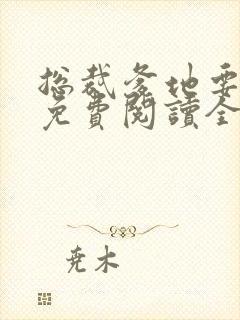 总裁爹地要
免費閱讀全
尭木